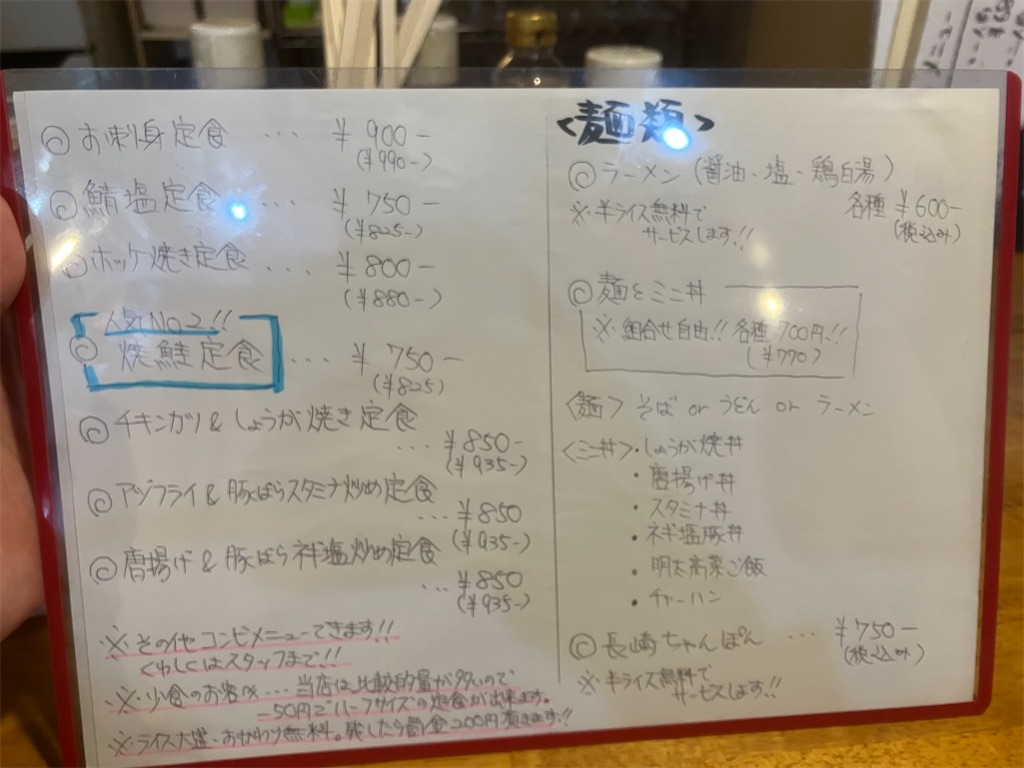 ◎お刺身定食 ... ¥900-
(¥990-)
◎鯖塩定食 ... ¥750-
(¥825-)
◎ホッケ焼き定食 ... ¥800-
(¥880-)
人気No2!!
◎焼鮭定食 ... ¥750-
(¥825)
◎チキンガリ&しょうが焼き定食
... ¥850-
(¥935-)
◎アジフライ&豚ばらスタミナ炒め定食
... ¥850
(¥935-)
◎唐揚げ&豚ばらネギ塩炒め定食
... ¥850
(¥935-)
※その他コンビメニューできます!!
くわしくはスタッフまで!!
※少食のお客様...当店は比較的量が多いので
-50円でハーフサイズの定食が出来ます。
※ライス大盛・おかわり無料。残したら罰金200円頂きます!!
<麺類>
◎ラーメン(醤油・塩・鶏白湯)
各種 ¥600-
(税込み)
※半ライス無料で
サービスします!!
◎麺とミニ丼
※組合せ自由!!各種700円!!
(¥770)
<麺> そば or うどん or ラーメン
<ミニ丼>・しょうが焼丼
・唐揚げ丼
・スタミナ丼
・ネギ塩豚丼
・明太高菜ご飯
・チャーハン
◎長崎ちゃんぽん ... ¥750-
(税込み)
※半ライス無料で
サービスします!!